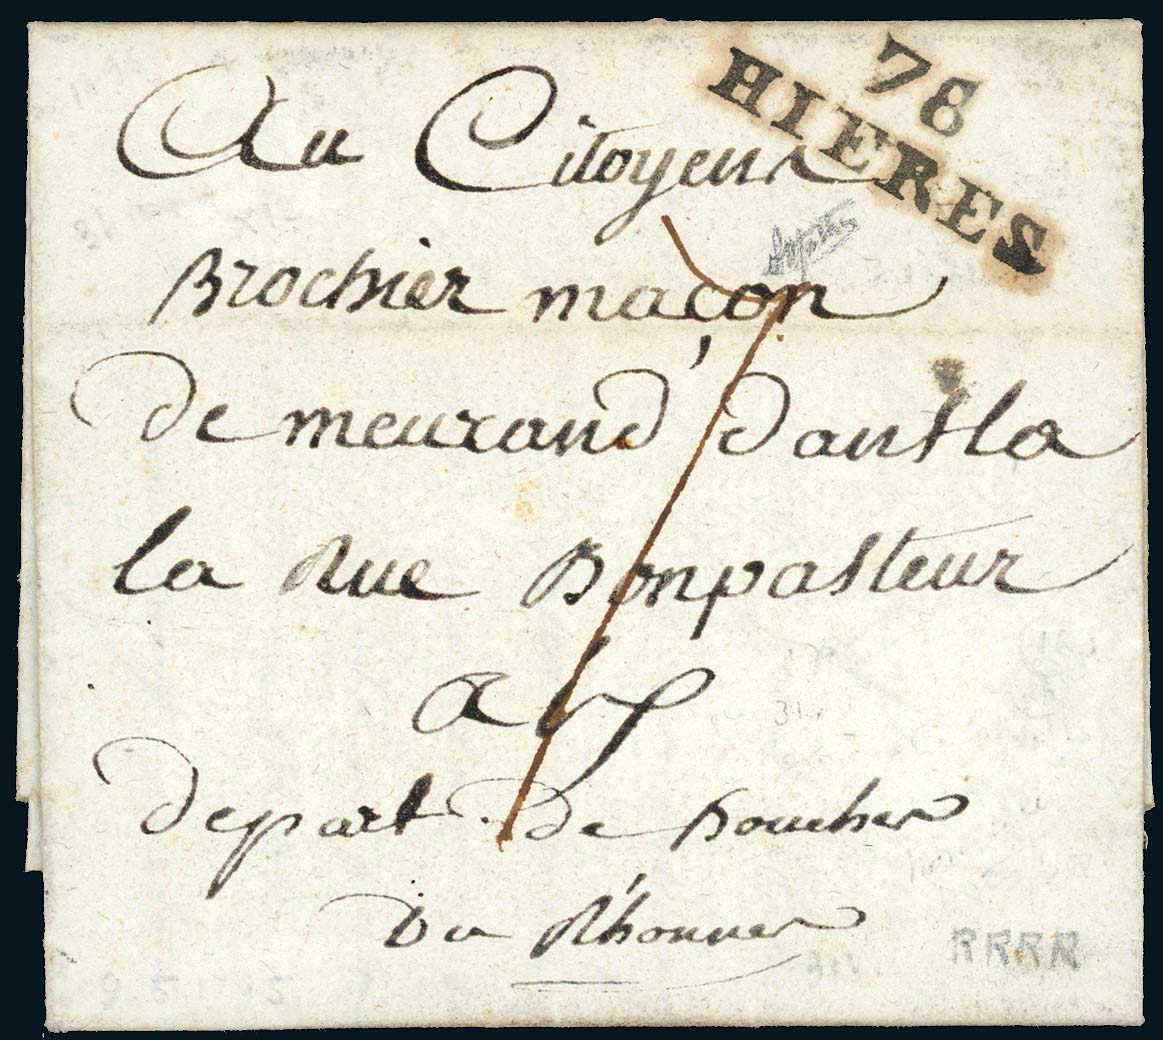 78
HIERES
Au Citoyen
Brochier maçon
de meurand dans la
la Rue Bonpasteur
a aix
depart de bouches
Du Rhonne
RRRR